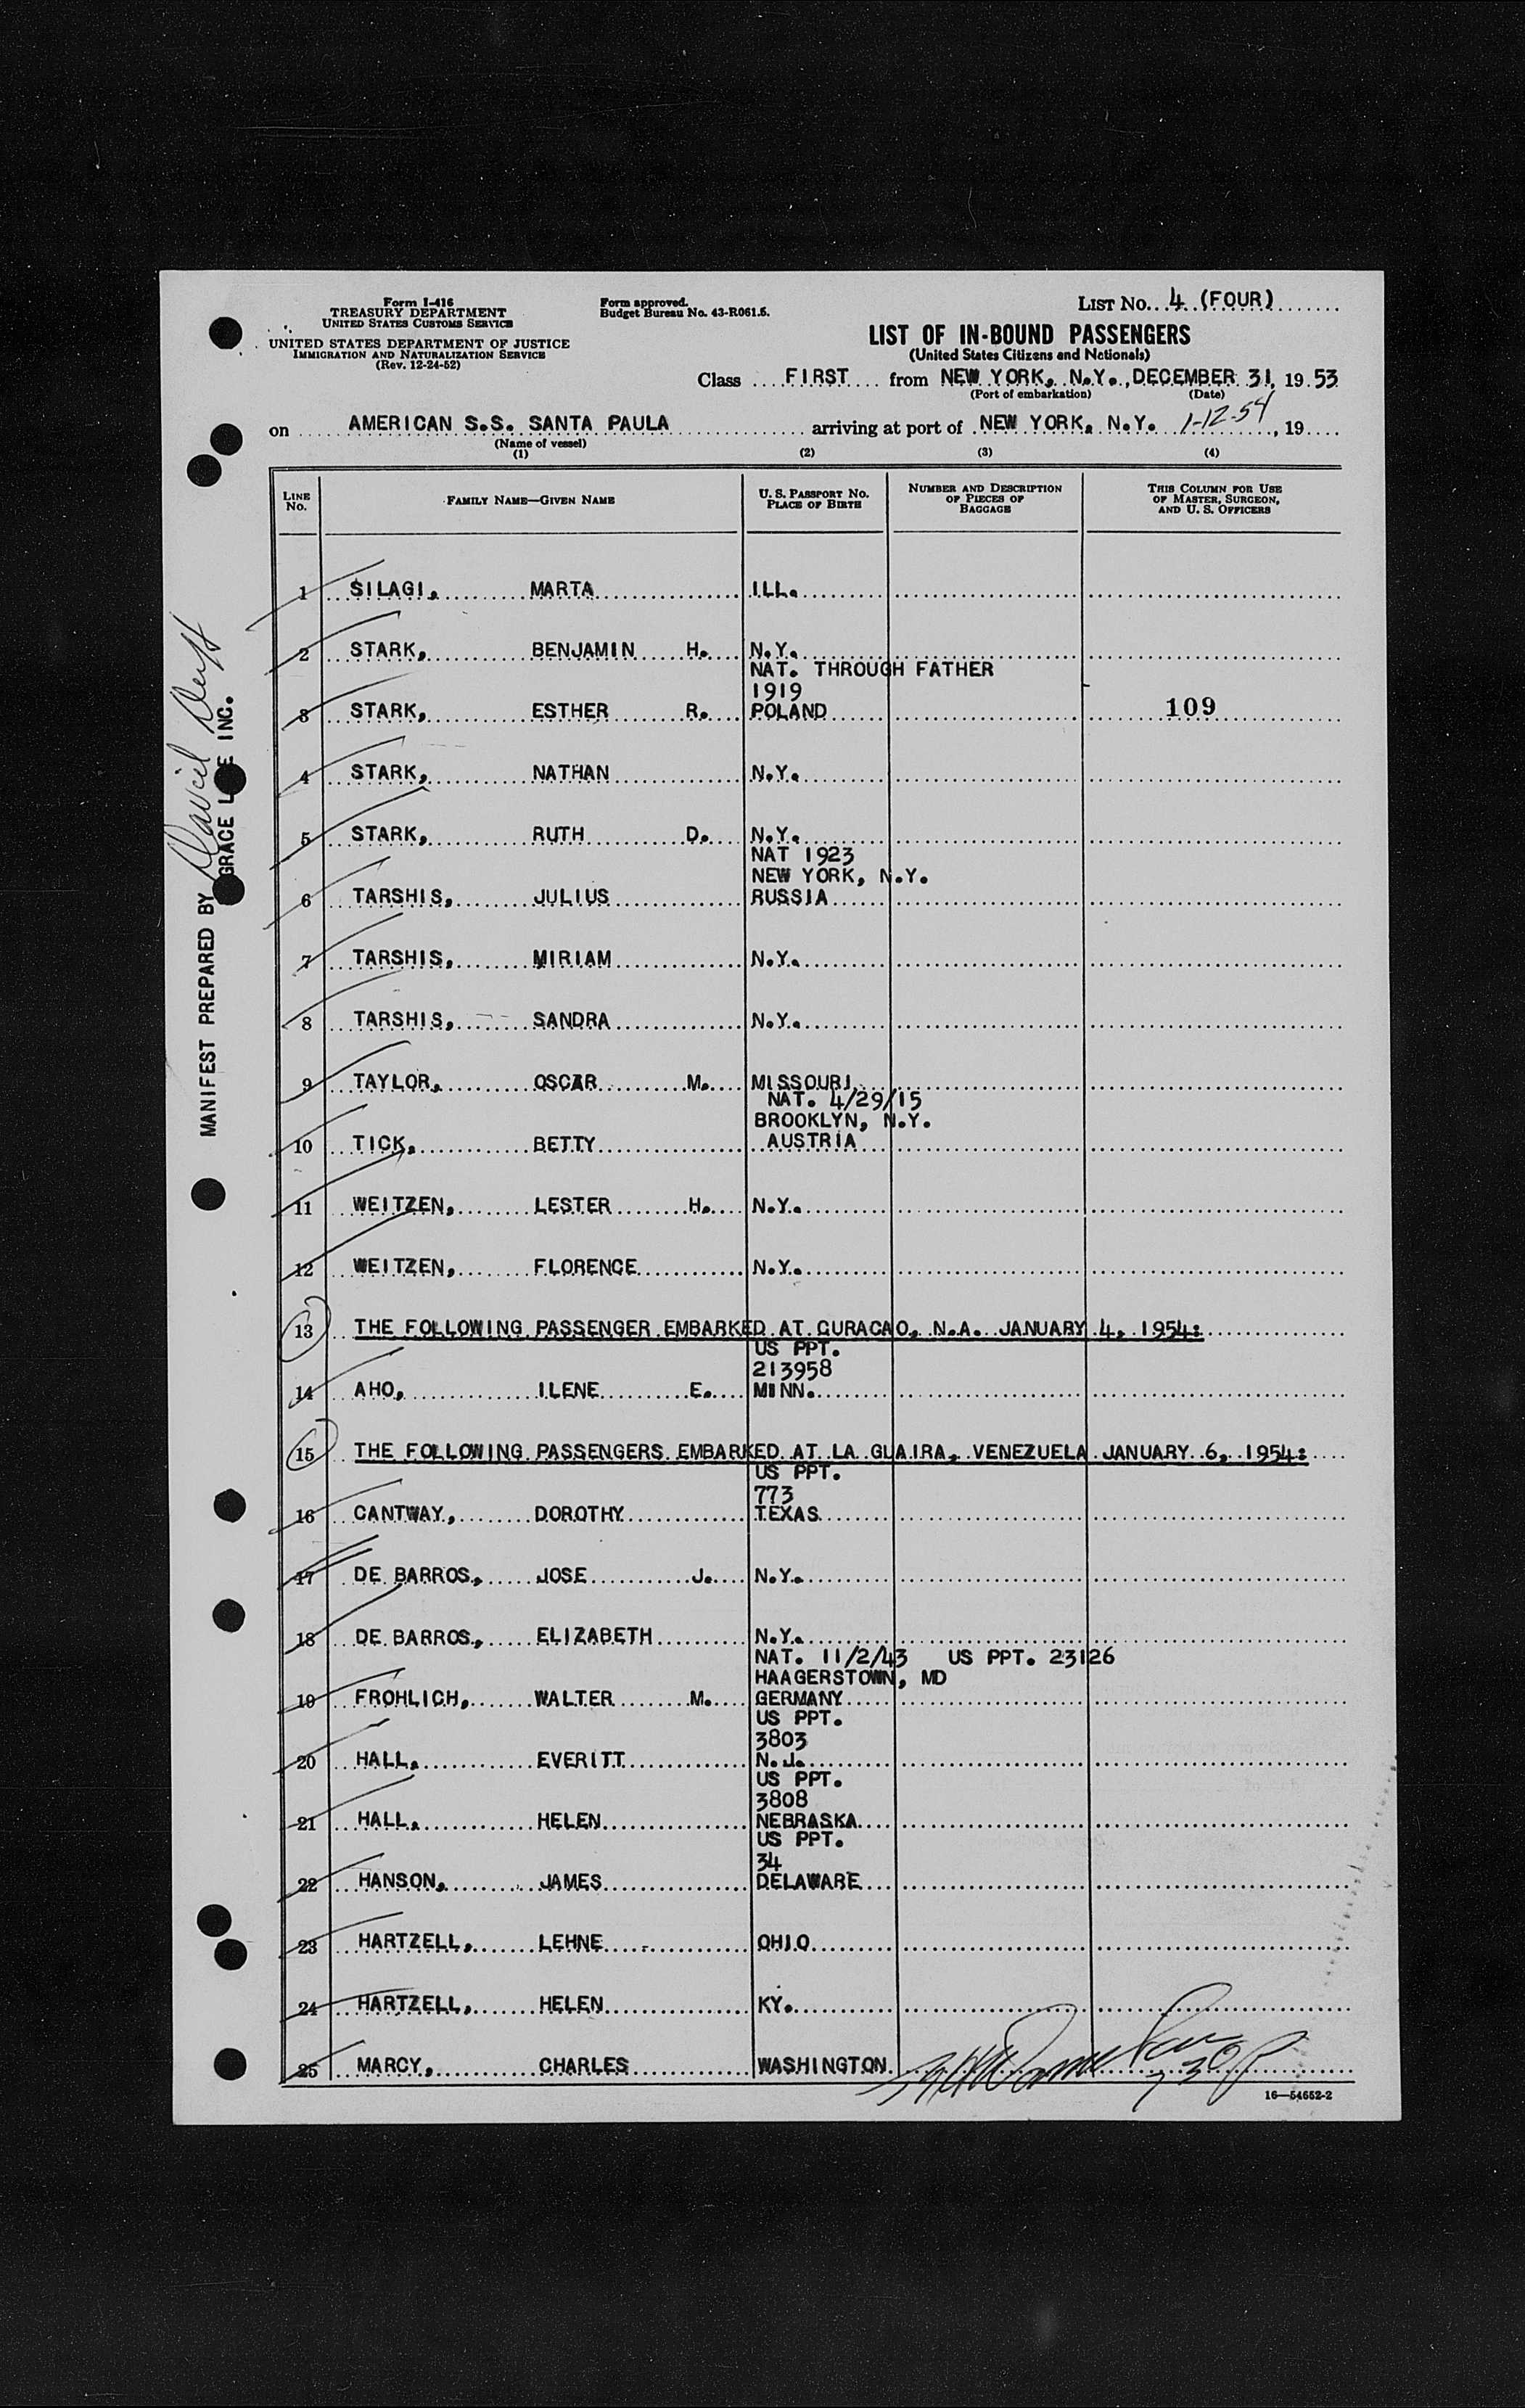 Form I-416
TREASURY DEPARTMENT
UNITED STATES CUSTOMS SERVICE
UNITED STATES DEPARTMENT OF JUSTICE
IMMIGRATION AND NATURALIZATION SERVICE
(Rev. 12-24-52)
Form approved.
Budget Bureau No. 43-R061.5.
LIST NO. 4 (FOUR)
LIST OF IN-BOUND PASSENGERS
(United States Citizens and Nationals)
Class FIRST from NEW YORK, N.Y., DECEMBER 31, 1953
(Port of embarkation) (Date)
on AMERICAN S.S. SANTA PAULA arriving at port of NEW YORK, N.Y. 1-12-54, 19
(Name of vessel)
(1) (2) (3) (4)
LINE NO. FAMILY NAME—GIVEN NAME U. S. PASSPORT NO. PLACE OF BIRTH NUMBER AND DESCRIPTION OF PIECES OF BAGGAGE THIS COLUMN FOR USE OF MASTER, SURGEON, AND U. S. OFFICERS
1 SILAGI, MARTA ILL.
2 STARK, BENJAMIN H. N.Y.
NAT. THROUGH FATHER
1919
3 STARK, ESTHER R. POLAND 109
4 STARK, NATHAN N.Y.
5 STARK, RUTH D. N.Y.
NAT 1923
NEW YORK, N.Y.
6 TARSHIS, JULIUS RUSSIA
7 TARSHIS, MIRIAM N.Y.
8 TARSHIS, SANDRA N.Y.
9 TAYLOR, OSCAR M. MISSOURI
NAT. 4/29/15
BROOKLYN, N.Y.
10 TICK, BETTY AUSTRIA
11 WEITZEN, LESTER H. N.Y.
12 WEITZEN, FLORENCE N.Y.
13 THE FOLLOWING PASSENGER EMBARKED AT CURACAO, N.A. JANUARY 4, 1954:
US PPT.
213958
14 AHO, ILENE E. MINN.
15 THE FOLLOWING PASSENGERS EMBARKED AT LA GUAIRA, VENEZUELA JANUARY 6, 1954:
US PPT.
773
16 CANTWAY, DOROTHY TEXAS
17 DE BARROS, JOSE J. N.Y.
18 DE BARROS, ELIZABETH N.Y.
NAT. 11/2/43 US PPT. 23126
HAAGERSTOWN, MD
19 FROHLICH, WALTER M. GERMANY
US PPT.
3803
20 HALL, EVERITT N.J.
US PPT.
3808
21 HALL, HELEN NEBRASKA
US PPT.
34
22 HANSON, JAMES DELAWARE
23 HARTZELL, LEHNE OHIO
24 HARTZELL, HELEN KY.
25 MARCY, CHARLES WASHINGTON
16—54652-2
MANIFEST PREPARED BY David
GRACE LINE INC.